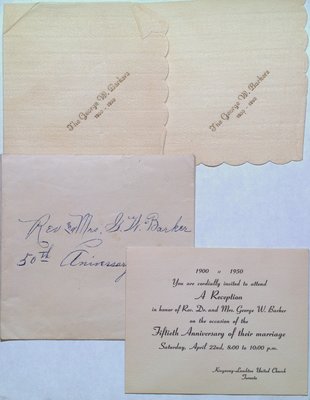 The George W. Barkers
1900 - 1950
The George W. Barkers
1900 - 1950
Rev & Mrs. G. W. Barker
50th Aniversary
1900 1950
You are cordially invited to attend
A Reception
in honor of Rev. Dr. and Mrs. George W. Barker
on the occasion of the
Fiftieth Anniversary of their marriage
Saturday, April 22nd, 8:00 to 10:00 p.m.
Kingsway-Lambton United Church
Toronto